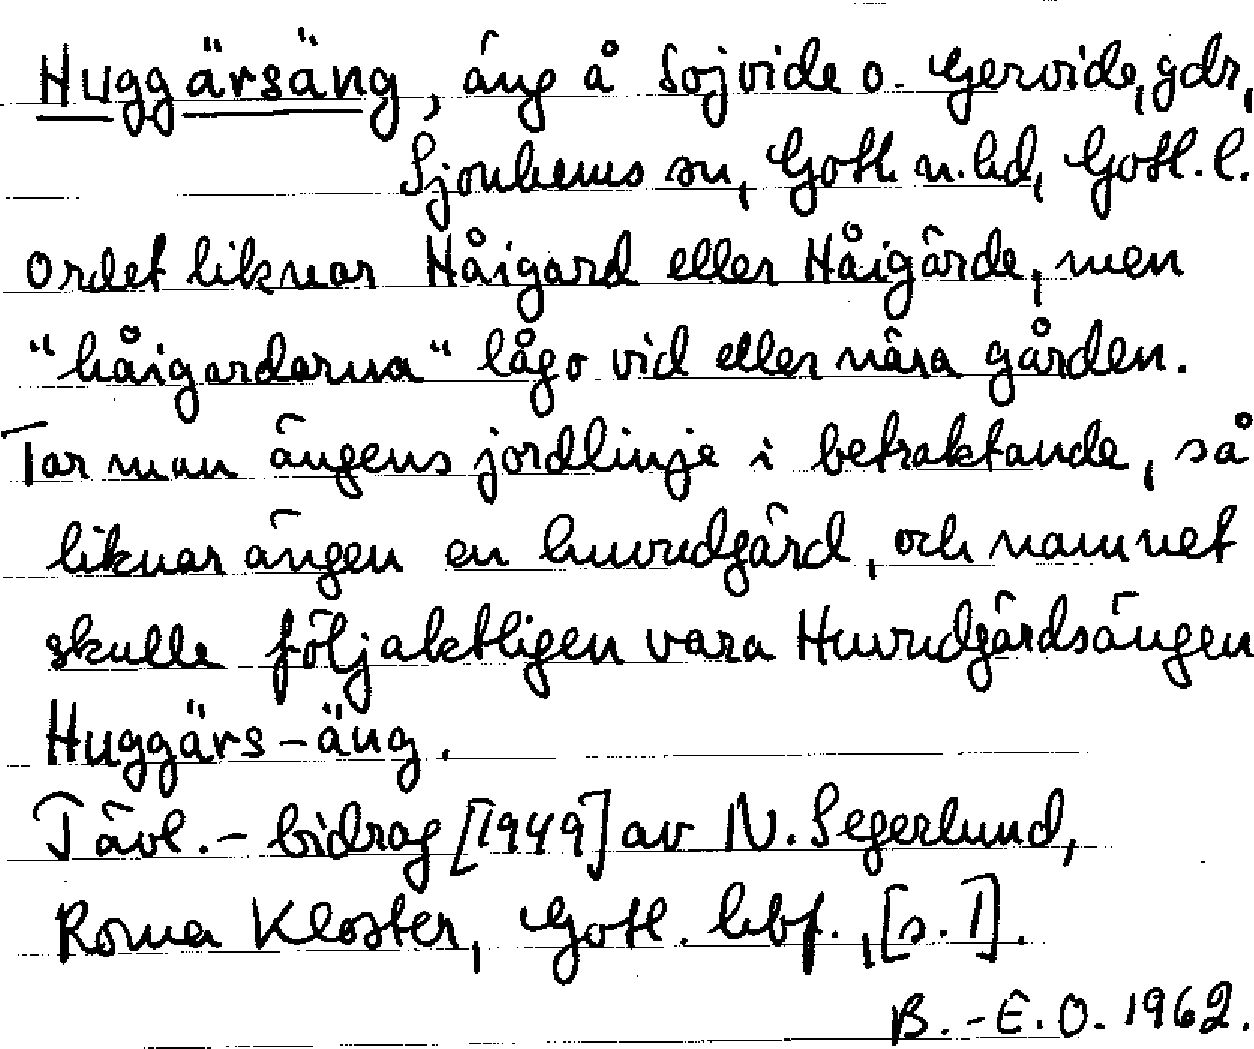 Huggärsäng, äng å Sojvide o. Gervide, gdr,
Sjonhems sn, Gotl. n. hd, Gotl. l.
Ordet liknar Håigard eller Håigärde, men
"håigardarna" lågo vid eller nära gården.
Tar man ängens jordlinje i betraktande, så
liknar ängen en huvudgärd, och namnet
skulle följaktligen vara Huvudgärdsängen
Huggärs-äng.
Tävl.-bidrag [1949] av N. Segerlund,
Roma Kloster, Gotl. hbf., [s. 1].
B.-E.O. 1962.